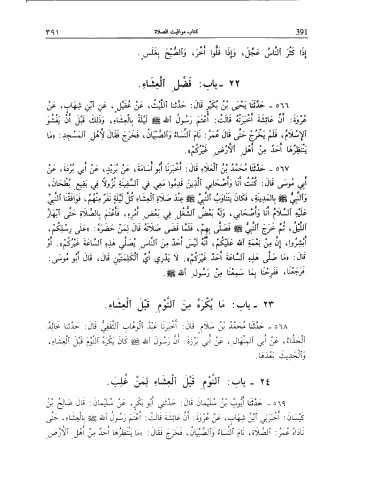 391 كتاب مواقيت الصلاة ٣٩١
إِذَا كَثُرَ النَّاسُ عَجَّلَ، وَإِذَا قَلُّوا أَخَّرَ، وَالصُّبْحَ بِغَلَسٍ.
٢٢ - باب: فَضْلِ العِشَاءِ.
٥٦٦ - حَدَّثَنَا يَحْيَى بْنُ بُكَيْرٍ قَالَ: حَدَّثَنَا اللَّيْثُ، عَنْ عُقَيْلٍ، عَنِ ابْنِ شِهَابٍ، عَنْ
عُرْوَةَ: أَنَّ عَائِشَةَ أَخْبَرَتْهُ قَالَتْ: أَعْتَمَ رَسُولُ اللهِ ﷺ لَيْلَةً بِالعِشَاءِ، وَذَلِكَ قَبْلَ أَنْ يَفْشُوَ
الإِسْلَامُ، فَلَمْ يَخْرُجْ حَتَّى قَالَ عُمَرُ: نَامَ النِّسَاءُ وَالصِّبْيَانُ، فَخَرَجَ فَقَالَ لِأَهْلِ المَسْجِدِ: «مَا
يَنْتَظِرُهَا أَحَدٌ مِنْ أَهْلِ الأَرْضِ غَيْرُكُمْ».
٥٦٧ - حَدَّثَنَا مُحَمَّدُ بْنُ العَلَاءِ قَالَ: أَخْبَرَنَا أَبُو أُسَامَةَ، عَنْ بُرَيْدٍ، عَنْ أَبِي بُرْدَةَ، عَنْ
أَبِي مُوسَى قَالَ: كُنْتُ أَنَا وَأَصْحَابِي الَّذِينَ قَدِمُوا مَعِي فِي السَّفِينَةِ نُزُولًا فِي بَقِيعِ بُطْحَانَ،
وَالنَّبِيُّ ﷺ بِالمَدِينَةِ، فَكَانَ يَتَنَاوَبُ النَّبِيَّ ﷺ عِنْدَ صَلَاةِ العِشَاءِ كُلَّ لَيْلَةٍ نَفَرٌ مِنْهُمْ، فَوَافَقْنَا النَّبِيَّ
عَلَيْهِ السَّلَامُ أَنَا وَأَصْحَابِي، وَلَهُ بَعْضُ الشُّغْلِ فِي بَعْضِ أَمْرِهِ، فَأَعْتَمَ بِالصَّلَاةِ حَتَّى ابْهَارَّ
اللَّيْلُ، ثُمَّ خَرَجَ النَّبِيُّ ﷺ فَصَلَّى بِهِمْ، فَلَمَّا قَضَى صَلَاتَهُ قَالَ لِمَنْ حَضَرَهُ: «عَلَى رِسْلِكُمْ،
أَبْشِرُوا، إِنَّ مِنْ نِعْمَةِ اللهِ عَلَيْكُمْ، أَنَّهُ لَيْسَ أَحَدٌ مِنَ النَّاسِ يُصَلِّي هَذِهِ السَّاعَةَ غَيْرُكُمْ». أَوْ
قَالَ: «مَا صَلَّى هَذِهِ السَّاعَةَ أَحَدٌ غَيْرُكُمْ». لَا يَدْرِي أَيَّ الكَلِمَتَيْنِ قَالَ، قَالَ أَبُو مُوسَى:
فَرَجَعْنَا، فَفَرِحْنَا بِمَا سَمِعْنَا مِنْ رَسُولِ اللهِ ﷺ.
٢٣ - باب: مَا يُكْرَهُ مِنَ النَّوْمِ قَبْلَ العِشَاءِ.
٥٦٨ - حَدَّثَنَا مُحَمَّدُ بْنُ سَلَامٍ قَالَ: أَخْبَرَنَا عَبْدُ الوَهَّابِ الثَّقَفِيُّ قَالَ: حَدَّثَنَا خَالِدٌ
الحَذَّاءُ، عَنْ أَبِي المِنْهَالِ، عَنْ أَبِي بَرْزَةَ: أَنَّ رَسُولَ اللهِ ﷺ كَانَ يَكْرَهُ النَّوْمَ قَبْلَ العِشَاءِ،
وَالحَدِيثَ بَعْدَهَا.
٢٤ - باب: النَّوْمِ قَبْلَ العِشَاءِ لِمَنْ غُلِبَ.
٥٦٩ - حَدَّثَنَا أَيُّوبُ بْنُ سُلَيْمَانَ قَالَ: حَدَّثَنِي أَبُو بَكْرٍ، عَنْ سُلَيْمَانَ قَالَ: صَالِحُ بْنُ
كَيْسَانَ: أَخْبَرَنِي ابْنُ شِهَابٍ، عَنْ عُرْوَةَ: أَنَّ عَائِشَةَ قَالَتْ: أَعْتَمَ رَسُولُ اللهِ ﷺ بِالعِشَاءِ، حَتَّى
نَادَاهُ عُمَرُ: الصَّلَاةَ، نَامَ النِّسَاءُ وَالصِّبْيَانُ، فَخَرَجَ فَقَالَ: «مَا يَنْتَظِرُهَا أَحَدٌ مِنْ أَهْلِ الأَرْضِ